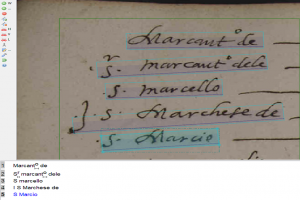 Marcant.º de
. S.r marcant.º dele
. S. marcello
.} . S. Marchese de
. S. Marcio
1 Marcantº de
2 Sr marcantº dele
3 S marcallo
4 I S Marchese de
5 S Marcio